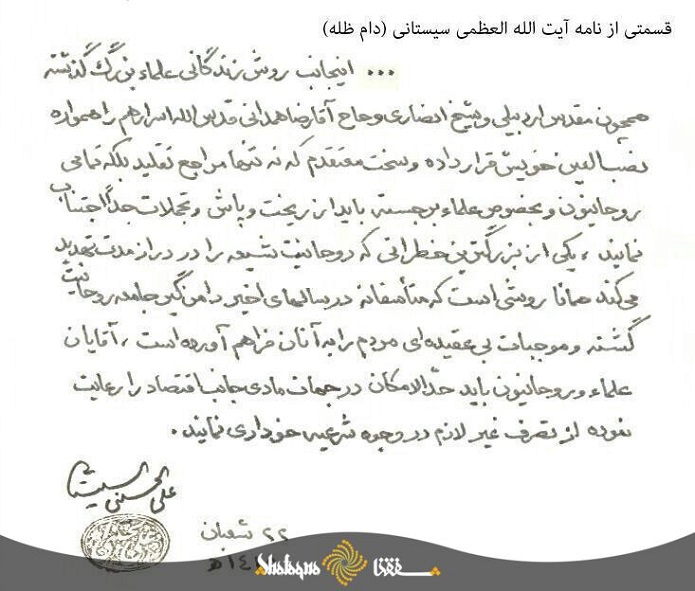 قسمتی از نامه آیت الله العظمی سیستانی (دام ظله)
... اینجانب روش زندگانی علماء بزرگ گذشته
همچون مقدس اردبیلی وشیخ انصاری وحاج آقارضا همدانی قدس الله اسرارهم را همواره
نصب العین خویش قرار داده و سخت معتقدم که نه تنها مراجع تقلید بلکه تمامی
روحانیون و بخصوص علماء برجسته باید از ریخت و پاش و تجملات جداً اجتناب
نمایند ، یکی از بزرگترین خطراتی که روحانیت شیعه را در دراز مدت تهدید
می‌کند همانا روشی است که متأسفانه در سالهای اخیر دامن گیر جامعه روحانیت
گشته و موجبات بی عقیده‌ای مردم را به آنان فراهم آورده است ، آقایان
علماء و روحانیون باید حتّالامکان در جهات مادی جانب اقتصاد را رعایت
نموده از تصرف غیر لازم در وجوه شرعیه خودداری نمایند .
علی الحسینی السیستانی
٢٢ شعبان
شفقنا
Shafaqna